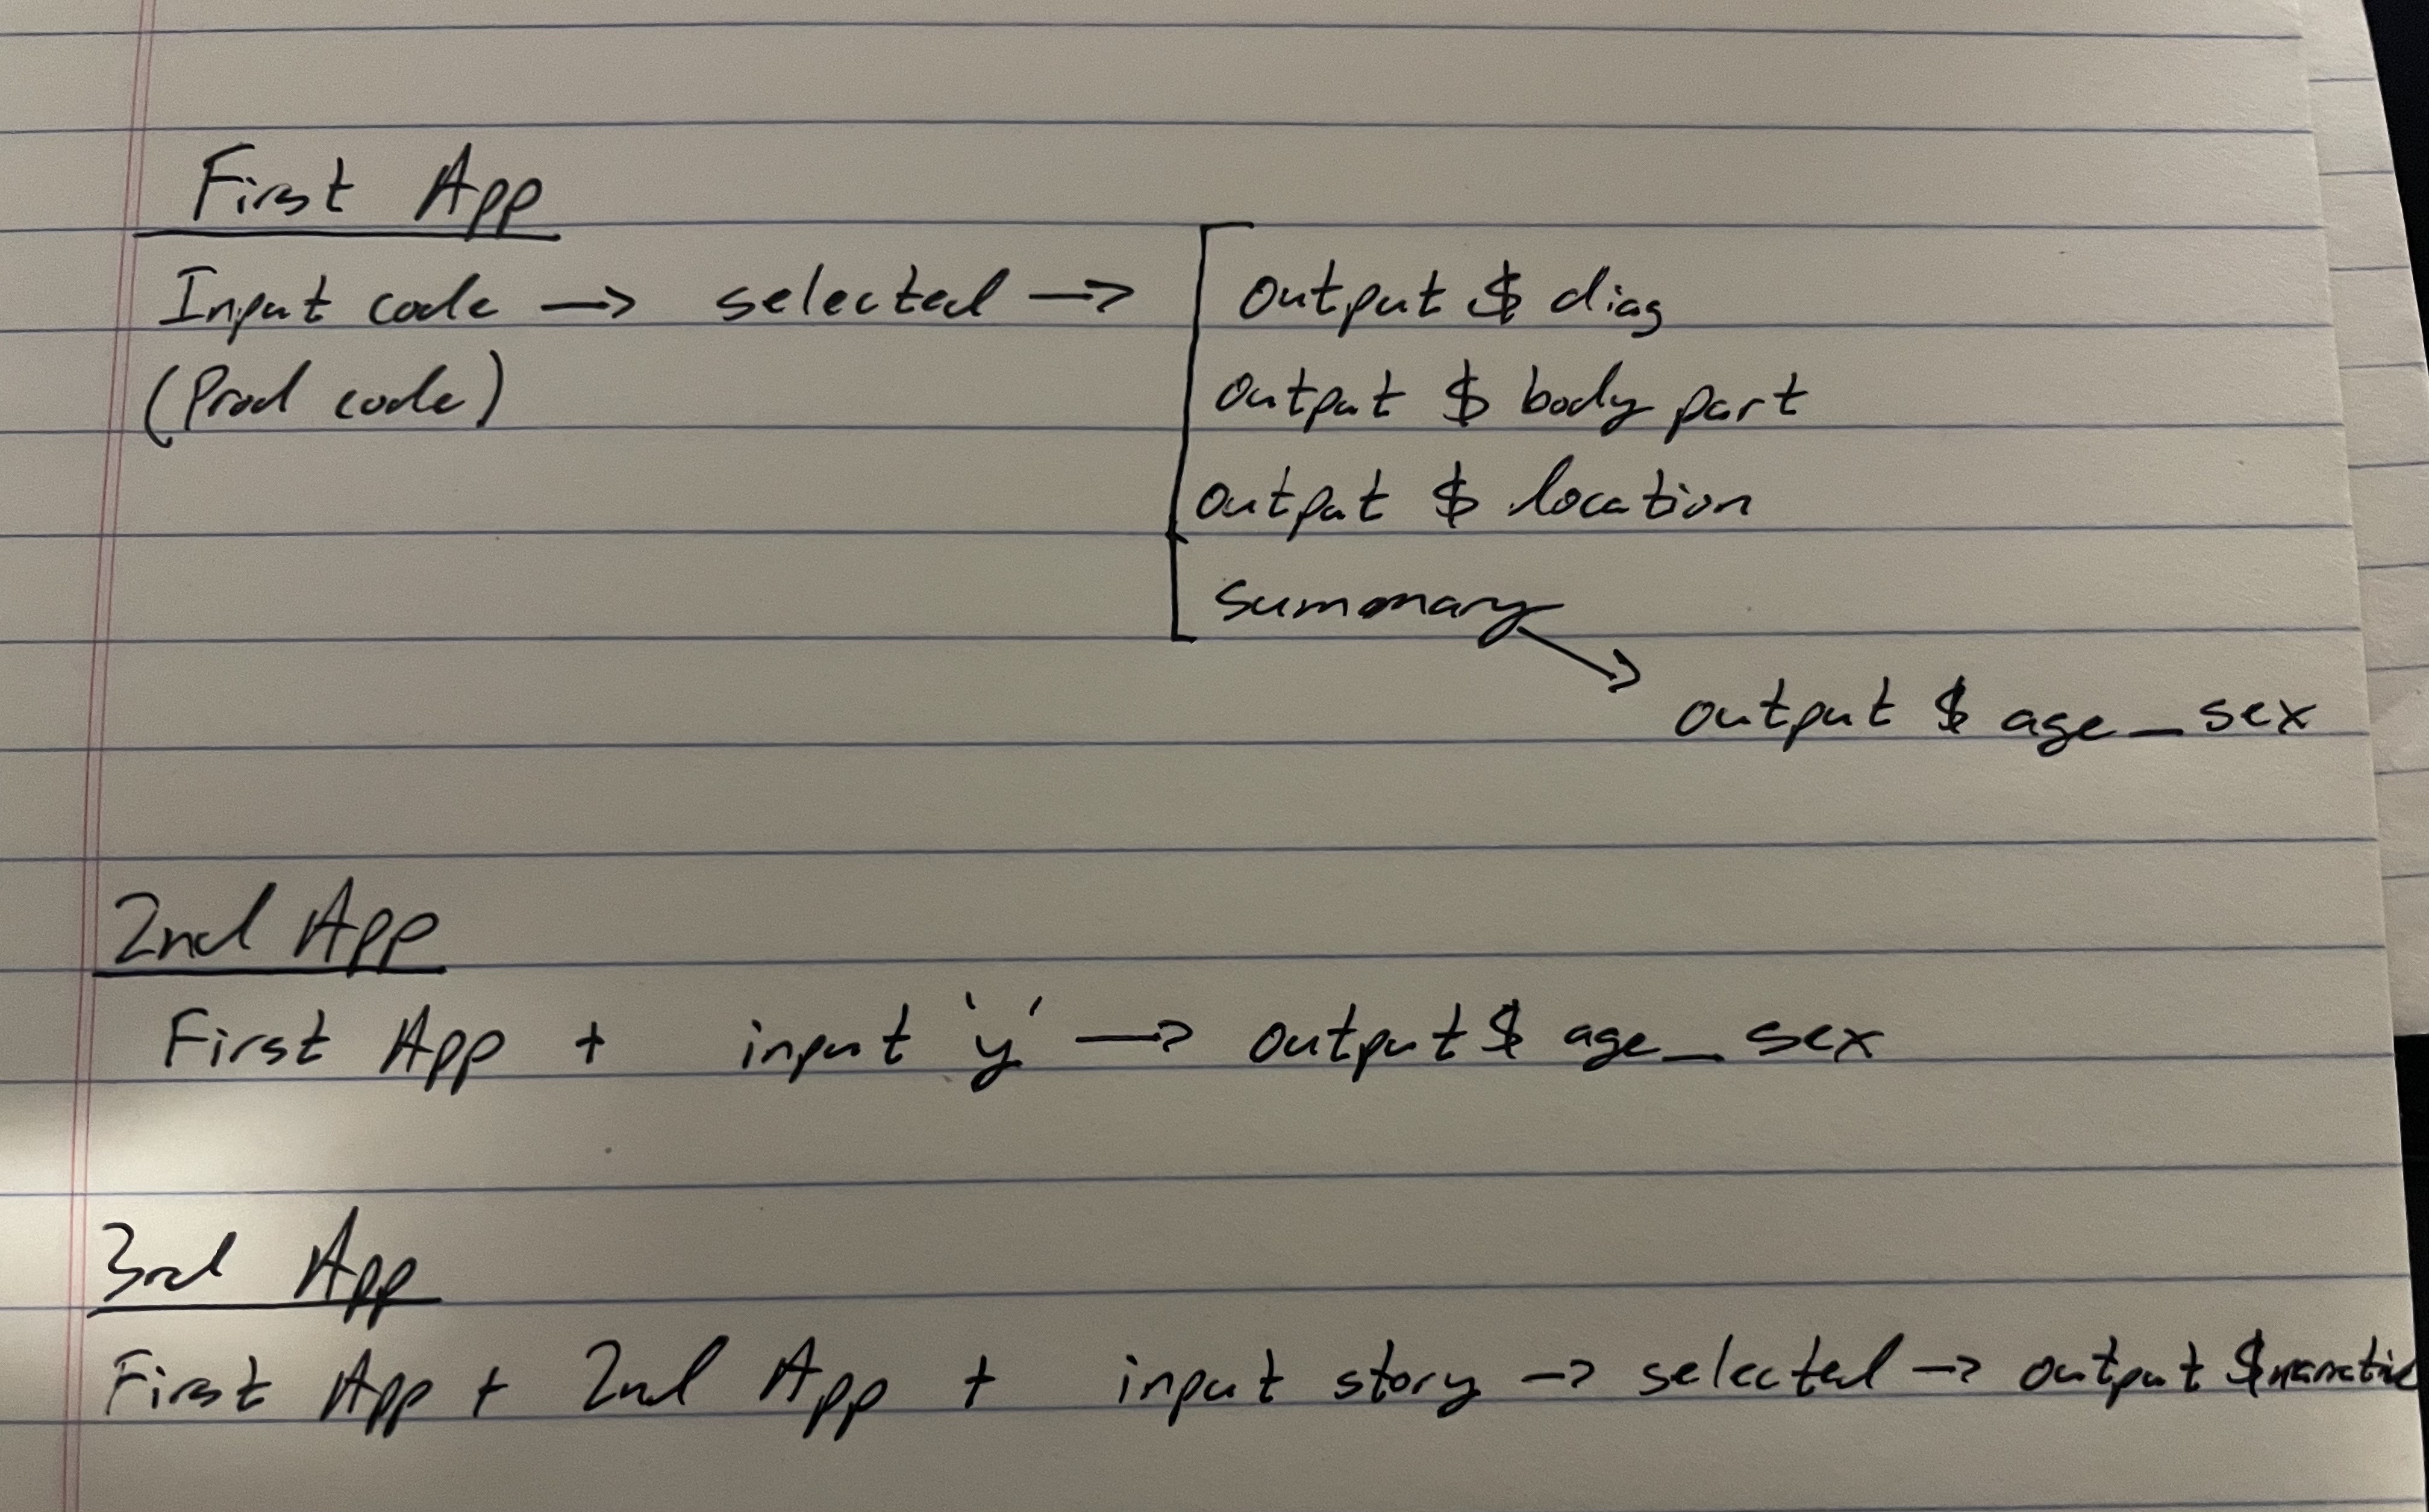 First App
Input code → selected → output $ diag
(Prod code) output $ body part
output $ location
summary
output $ age_sex
2nd App
First App + input 'y' → output $ age_sex
3rd App
First App + 2nd App + input story → selected → output $narrative